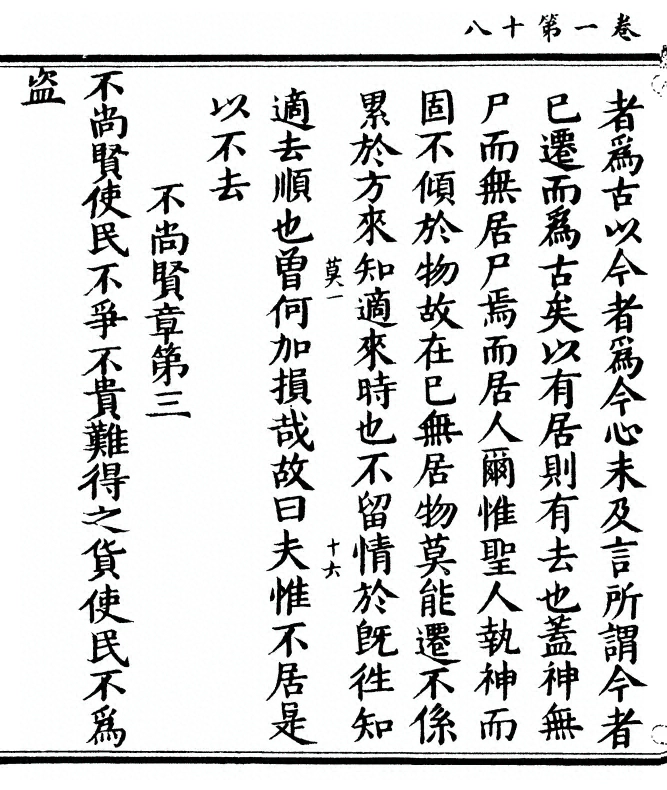 卷一第十八
者爲古以今者爲今心未及言所謂今者
已遷而爲古矣以有居則有去也蓋神無
尸而無居尸焉而居人爾惟聖人執神而
固不傾於物故在已無居物莫能遷不係
累於方來知適來時也不留情於旣徃知
莫一
十六
適去順也曾何加損哉故曰夫惟不居是
以不去
不尚賢章第三
不尚賢使民不爭不貴難得之貨使民不爲
盜